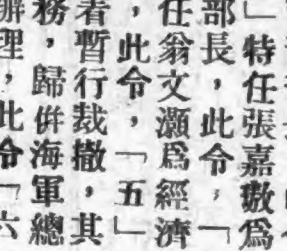 」特任張嘉璈爲
部長，此令，「
任翁文灝爲經濟
，此令，「五」
者暫行裁撤，其
務，歸併海軍總
辦理，此令「六